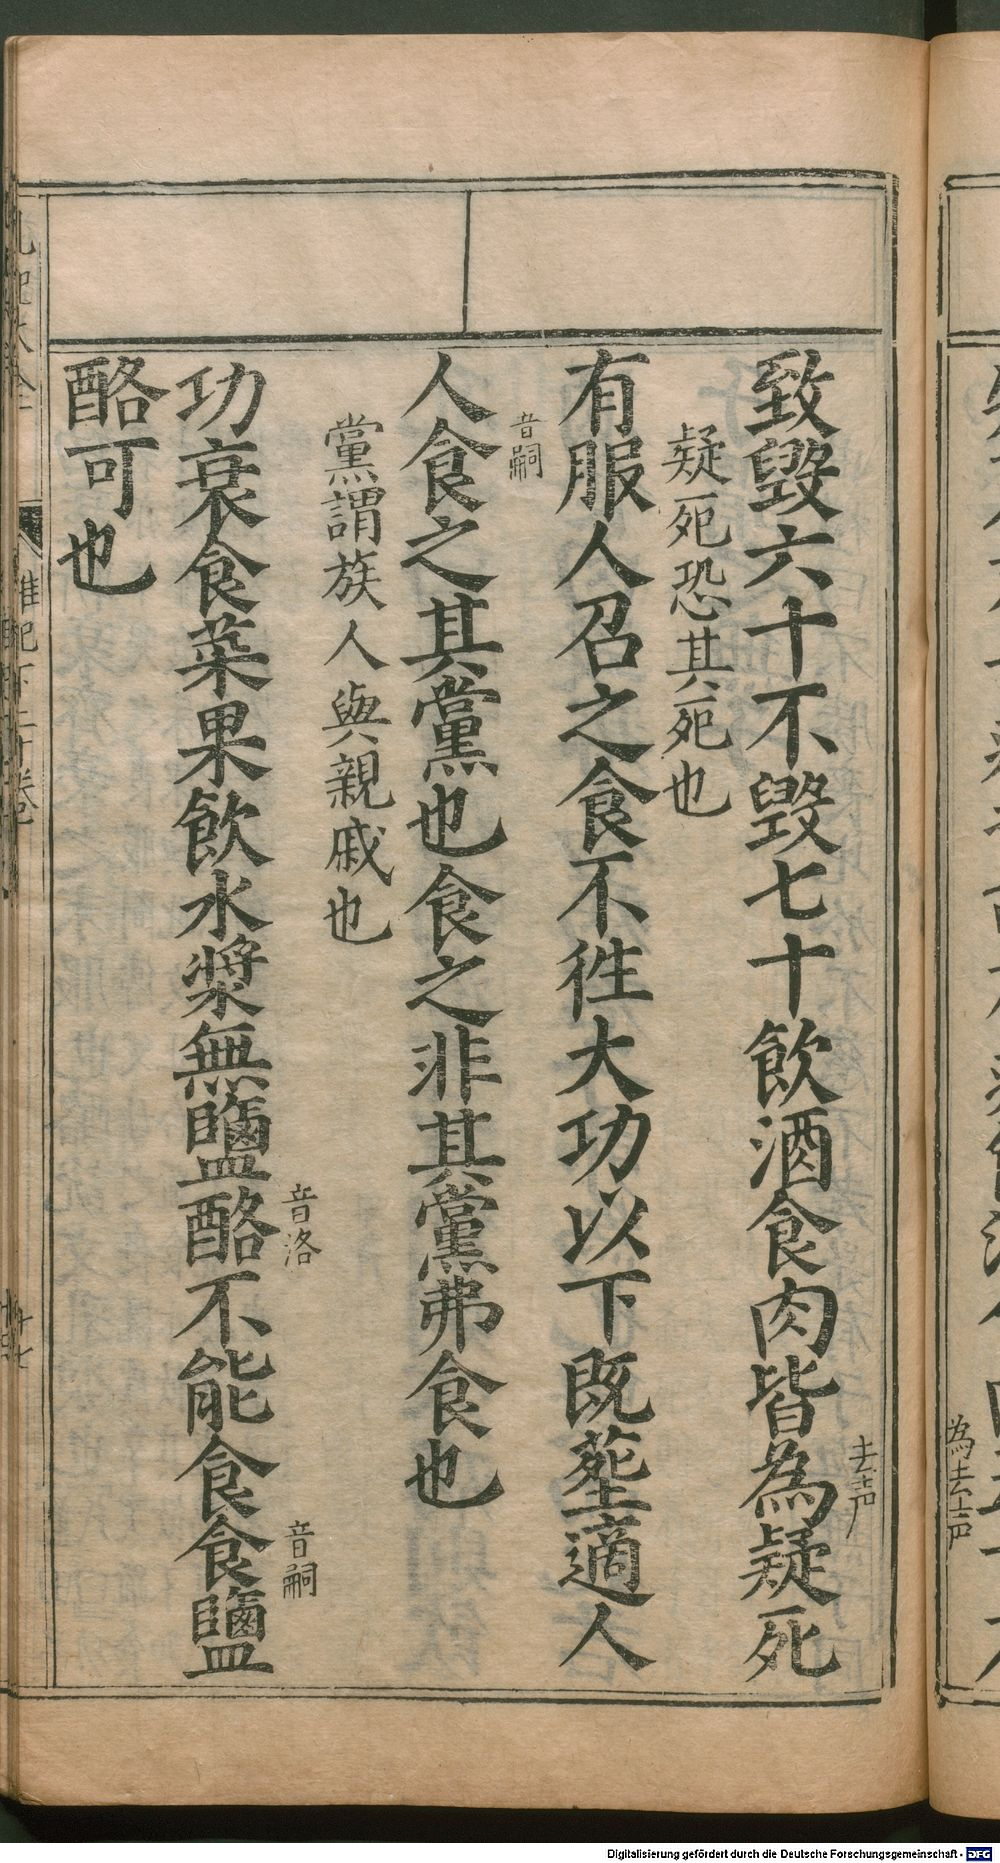 致毀六十不毀七十飲酒食肉皆為疑死
去声
疑死恐其死也
有服人召之食不徃大功以下既塟適人
人食之其黨也食之非其黨弗食也
音嗣
黨謂族人與親戚也
功衰食菜果飲水漿無鹽酪不能食食鹽
音洛
音嗣
酪可也
雜記下二十卷
十七
為去声
Digitalisierung gefördert durch die Deutsche Forschungsgemeinschaft - DFG